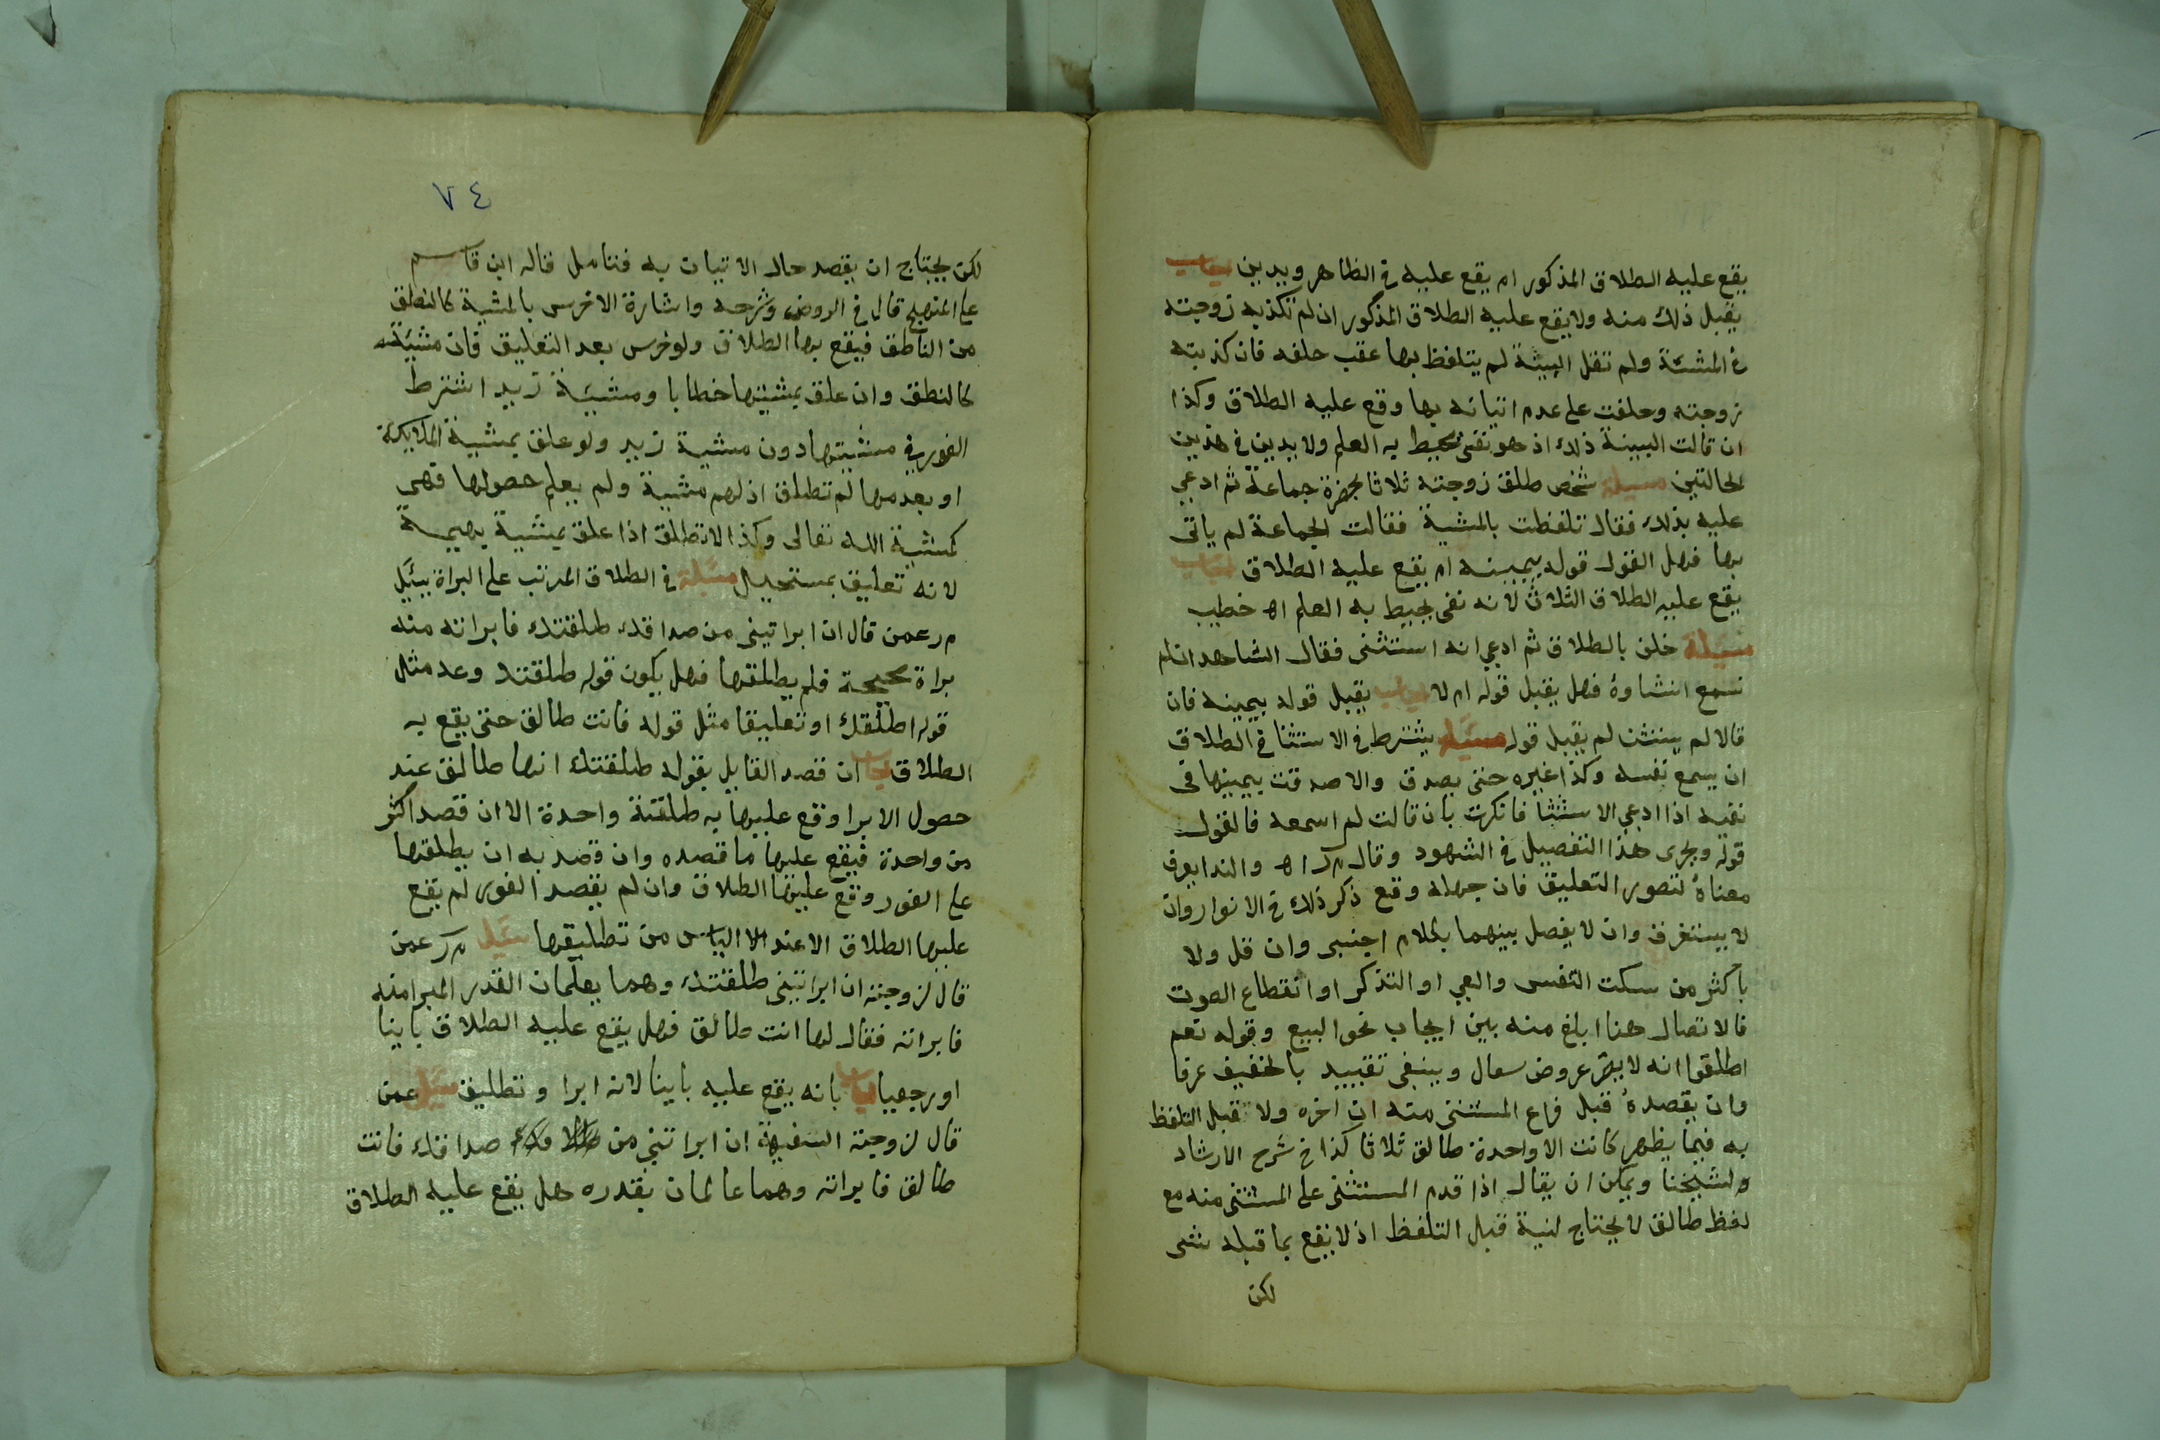 يقع عليه الطلاق المذكور ام يقع عليه في الظاهر ويدين اجاب
يقبل ذلك منه ولا يقع عليه الطلاق المذكور ان لم تكذبه زوجته
في المشئة ولم تقل البينة لم يتلفظ بها عقب حلفه فان كذبته
زوجته وحلفت على عدم اتيانه بها وقع عليه الطلاق وكذا
ان قالت البينة ذلك اذ هو نفي محيط به العلم ولا يدين في هذين
الحالتين مسيلة شخص طلق زوجته ثلاثا بحضرة جماعة ثم ادعي
عليه بذلك فقال تلفظت بالمشية فقالت الجماعة لم ياتي
بها فهل القول قوله بيمينه ام يقع عليه الطلاق اجاب
يقع عليه الطلاق الثلاث لانه نفى يحيط به العلم اه خطيب
مسيلة حلف بالطلاق ثم ادعي انه استثنى فقال الشاهد ان لم
نسمع انشاوة فهل يقبل قوله ام لا اجاب يقبل قوله بيمينه فان
قالا لم يستثن لم يقبل قوله مسيلة يشترط في الاستثنا في الطلاق
ان يسمع نفسه وكذا غيره حتى يصدق والا صدقت بيمينها في
نفيه اذا ادعي الاستثنا فانكرت بان قالت لم اسمعه فالقول
قوله ويجرى هذا التفصيل في الشهود وقال م ر اه وان يعرف
معناه لتصور التعليق فان جهله وقع ذكر ذلك في الانوار وان
لا يستغرق وان لا يفصل بينهما بكلام اجنبى وان قل ولا
باكثر من سكت التنفس والعي او التذكر او انقطاع الصوت
فالاتصال هنا ابلغ منه بين ايجاب نحو البيع وقوله نعم
اطلقوا انه لا يضر عروض سعال وينبغى تقييد بالخفيف عرفا
وان يقصده قبل فراغ المستثنى منه ان اخره ولا قبل التلفظ
به فيما يظهر كانت الا واحدة طالق ثلاثا كذا في شرح الارشاد
ولشيخنا ويمكن ان يقال اذا قدم المستثنى على المستثنى منه مع
لفظ طالق لا يحتاج لنية قبل التلفظ اذ لا يقع بما قبله شى
لكن
٧٤
لكن يحتاج ان يقصد حال الاتيان به فتامل قاله ابن قاسم
على المنهج قال في الروض وشرحه واشارة الاخرس بالمشية كالنطق
من الناطق فيقع بها الطلاق ولو خرس بعد التعليق فان مشيئته
كالنطق وان علق بمشيتها خطابا ومشيئة زيد اشترط
الفور في مشيتها دون مشية زيد ولو علق بمشية الملايكة
او بعدمها لم تطلق اذ لهم مشية ولم يعلم حصولها فهي
كمشية الله تعالى وكذا لا تطلق اذا علق بمشية بهيمة
لانه تعليق بمستحيل مسيلة في الطلاق المرتب على البراة سئيل
م ر عمن قال ان ابراتيني من صداقك طلقتك فابراته منه
براة صحيحة فلم يطلقها فهل يكون قوله طلقتك وعد مثل
قوله اطلقك او تعليقا مثل قوله فانت طالق حتى يقع به
الطلاق اجاب ان قصد القايل بقوله طلقتك انها طالق عند
حصول الابرا وقع عليها به طلقتة واحدة الا ان قصد اكثر
من واحدة فيقع عليها ما قصده وان قصد به ان يطلقها
على الفور وقع عليها الطلاق وان لم يقصد الفور لم يقع
عليها الطلاق الا عند الا الياس من تطليقها سئيل م ر عمن
قال لزوجته ان ابراتيني طلقتك وهما يعلمان القدر المبرا منه
فابراته فقال لها انت طالق فهل يقع عليه الطلاق باينا
او رجعيا اجاب بانه يقع عليه باينا لانه ابرا وتطليق سئيل عمن
قال لزوجته السفيهة ان ابراتيني من صداقك فانت
طالق فابراته وهما عالمان بقدره هل يقع عليه الطلاق